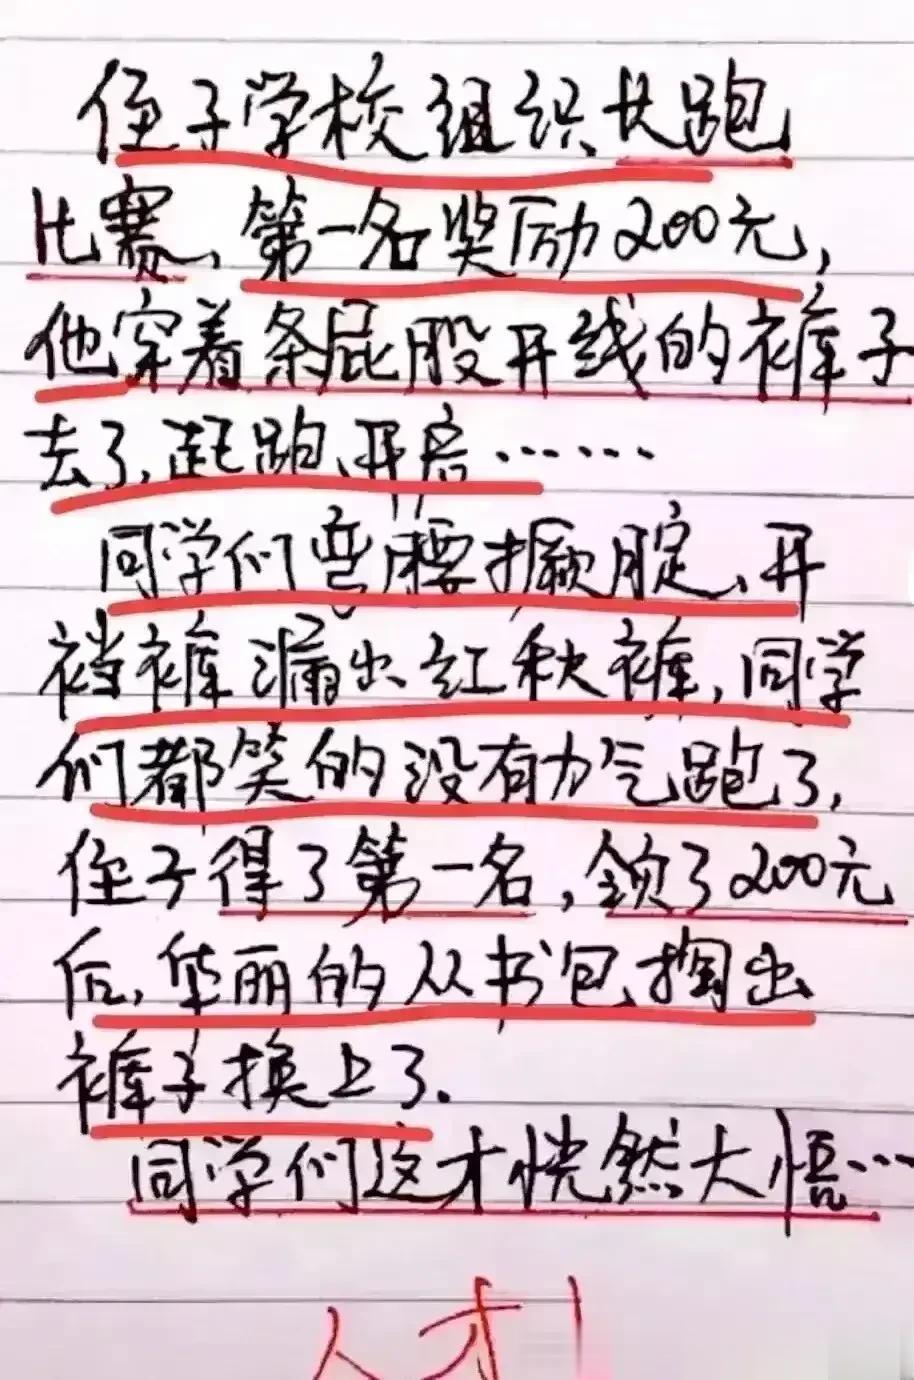 侄子学校组织长跑
比赛,第一名奖励200元,
他穿着条屁股开线的裤子
去了,起跑开启……
同学们弯腰撅腚、开
裆裤漏出红秋裤,同学
们都笑的没有力气跑了,
侄子得了第一名,领了200元
后,华丽的从书包掏出
裤子换上了.
同学们这才恍然大悟…
人才!